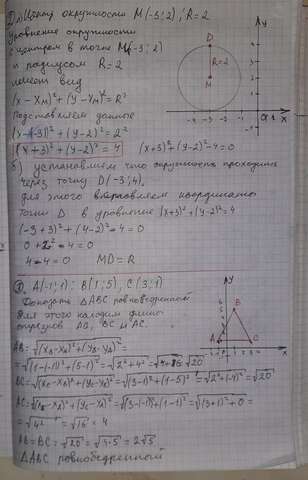 Центр окружности M(-3; 2), R=2
Уравнение окружности
с центром в точке M(-3; 2)
и радиусом R=2
имеет вид
(x-xм)²+(y-yм)²=R²
Подставляем данные
(x-(-3))²+(y-2)²=2²
(x+3)²+(y-2)²=4 (x+3)²+(y-2)²-4=0
б) установляем что окружность проходит
через точку D(-3; 4),
для этого вставляем координаты
точки D в уравнение (x+3)²+(y-2)²=4
(-3+3)²+(4-2)²-4=0
0+2²-4=0
4-4=0 MD=R
A(-1; 1); B(1; 5), C(3; 1)
Доказать ΔABC равнобедренный
Для этого находим длины
отрезков AB, BC и AC.
AB=√(xв-xа)²+(yв-yа)²=
=√(1-(-1))²+(5-1)²=√2²+4²=√4+16=√20
BC=√(xс-xв)²+(yс-yв)²=√(3-1)²+(1-5)²=√2²+(-4)²=√20
AC=√(xс-xа)²+(yс-yа)²=√(3-(-1))²+(1-1)²=√(3+1)²+0=
=√4²=√16=4
AB=BC=√20=√4·5=2√5
ΔABC равнобедренный
Ay
D
R=2
M
x
Ay
B
A
C
x